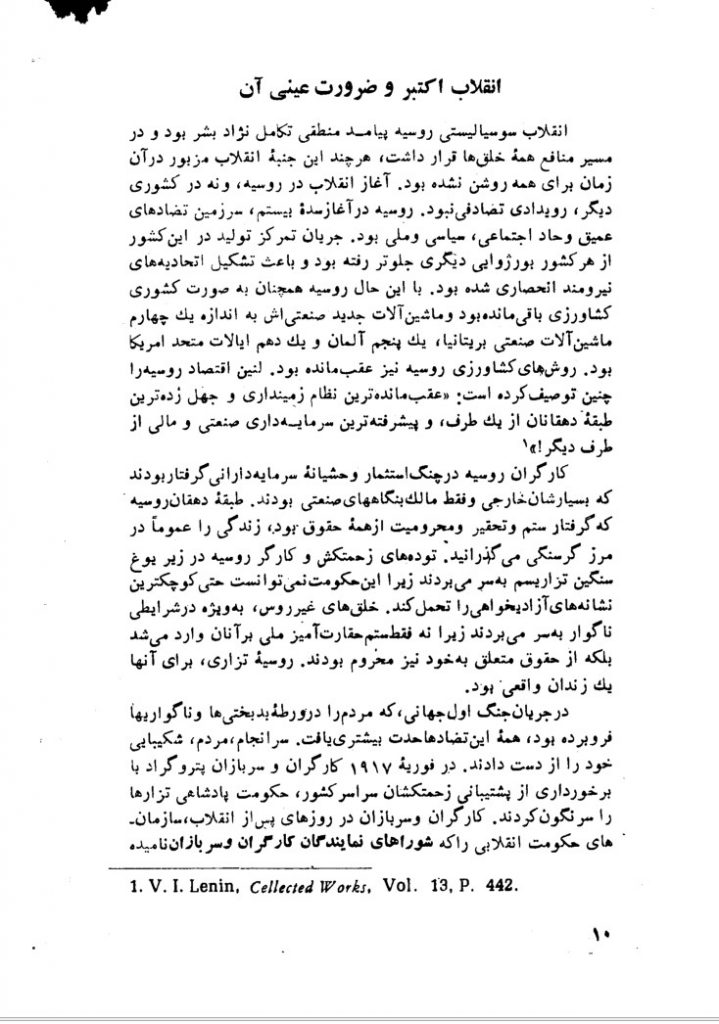 انقلاب اکتبر و ضرورت عینی آن
انقلاب سوسیالیستی روسیه پیامد منطقی تکامل نژاد بشر بود و در
مسیر منافع همهٔ خلق‌ها قرار داشت، هرچند این جنبهٔ انقلاب مزبور درآن
زمان برای همه روشن نشده بود. آغاز انقلاب در روسیه، ونه در کشوری
دیگر، رویدادی تصادفی‌نبود. روسیه درآغازسدهٔ بیستم، سرزمین تضادهای
عمیق وحاد اجتماعی، سیاسی وملی بود. جریان تمرکز تولید در این‌کشور
از هرکشور بورژوایی دیگری جلوتر رفته بود و باعث تشکیل اتحادیه‌های
نیرومند انحصاری شده بود. با این حال روسیه همچنان به صورت کشوری
کشاورزی باقی‌مانده‌بود وماشین‌آلات جدید صنعتی‌اش به اندازه یك چهارم
ماشین‌آلات صنعتی بریتانیا، یك پنجم آلمان و یك دهم ایالات متحد امریکا
بود. روش‌های‌کشاورزی روسیه نیز عقب‌مانده بود. لنین اقتصاد روسیه‌را
چنین توصیف‌کرده است: «عقب‌مانده‌ترین نظام زمینداری و جهل زده‌ترین
طبقهٔ دهقانان از یك طرف، و پیشرفته‌ترین سرمایـه‌داری صنعتی و مالی از
طرف دیگر!»۱
کارگران روسیه درچنگ‌استثمار وحشیانهٔ سرمایه‌دارانی‌گرفتاربودند
که بسیارشان‌خارجی وفقط مالك‌بنگاههای‌صنعتی بودند. طبقهٔ دهقان‌روسیه
که‌گرفتار ستم وتحقیر ومحرومیت ازهمهٔ حقوق بود، زندگی را عموماً در
مرز گرسنگی می‌گذرانید. توده‌های زحمتکش و کارگر روسیه در زیر یوغ
سنگین تزاریسم به‌سر می‌بردند زیرا این‌حکومت‌نمی‌توانست حتی‌کوچکترین
نشانه‌های‌آزادیخواهی‌را تحمل‌کند. خلق‌های غیرروس، به‌ویژه درشرایطی
ناگوار به‌سر می‌بردند زیرا نه فقط‌ستم‌حقارت‌آمیز ملی برآنان وارد می‌شد
بلکه از حقوق متعلق به‌خود نیز محروم بودند. روسیهٔ تزاری، برای آنها
یك زندان واقعی بود.
درجریان‌جنگ اول‌جهانی،که مردم‌را درورطهٔ‌بدبختی‌ها وناگواریها
فروبرده بود، همهٔ این‌تضادهاحدت بیشتری‌یافت. سرانجام،مردم، شکیبایی
خود را از دست دادند. در فوریهٔ ۱۹۱۷ کارگران و سربازان پتروگراد با
برخورداری از پشتیبانی زحمتکشان سراسرکشور، حکومت پادشاهی تزارها
را سرنگون‌کردند. کارگران وسربازان در روزهای پس‌از انقلاب،سازمان-
های حکومت انقلابی راکه شوراهای نمایندگان کارگران وسربازان‌نامیده
1. V. I. Lenin, Cellected Works, Vol. 13, P. 442.
۱۰